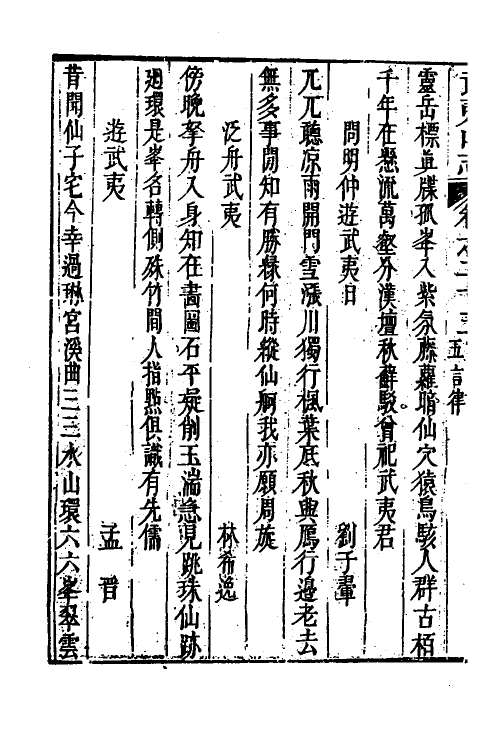 五言律
靈岳標真牒孤峯入紫氛藤蘿暗仙穴猿鳥駭人群古栢
千年在懸流萬壑分漢壇秋蘚駁曾祀武夷君
問明仲遊武夷日　劉子翬
兀兀聽凉雨開門雪漲川獨行楓葉底秋興鴈行邊老去
無多事閒知有勝緣何時縱仙舸我亦願周旋
泛舟武夷　林希逸
傍晚拏舟入身知在畵圖石平疑削玉湍急見跳珠仙跡
廻環是峯名轉側殊竹間人指點俱識有先儒
遊武夷　孟晋
昔聞仙子宅今幸過琳宮溪曲三三水山環六六峯翠雲